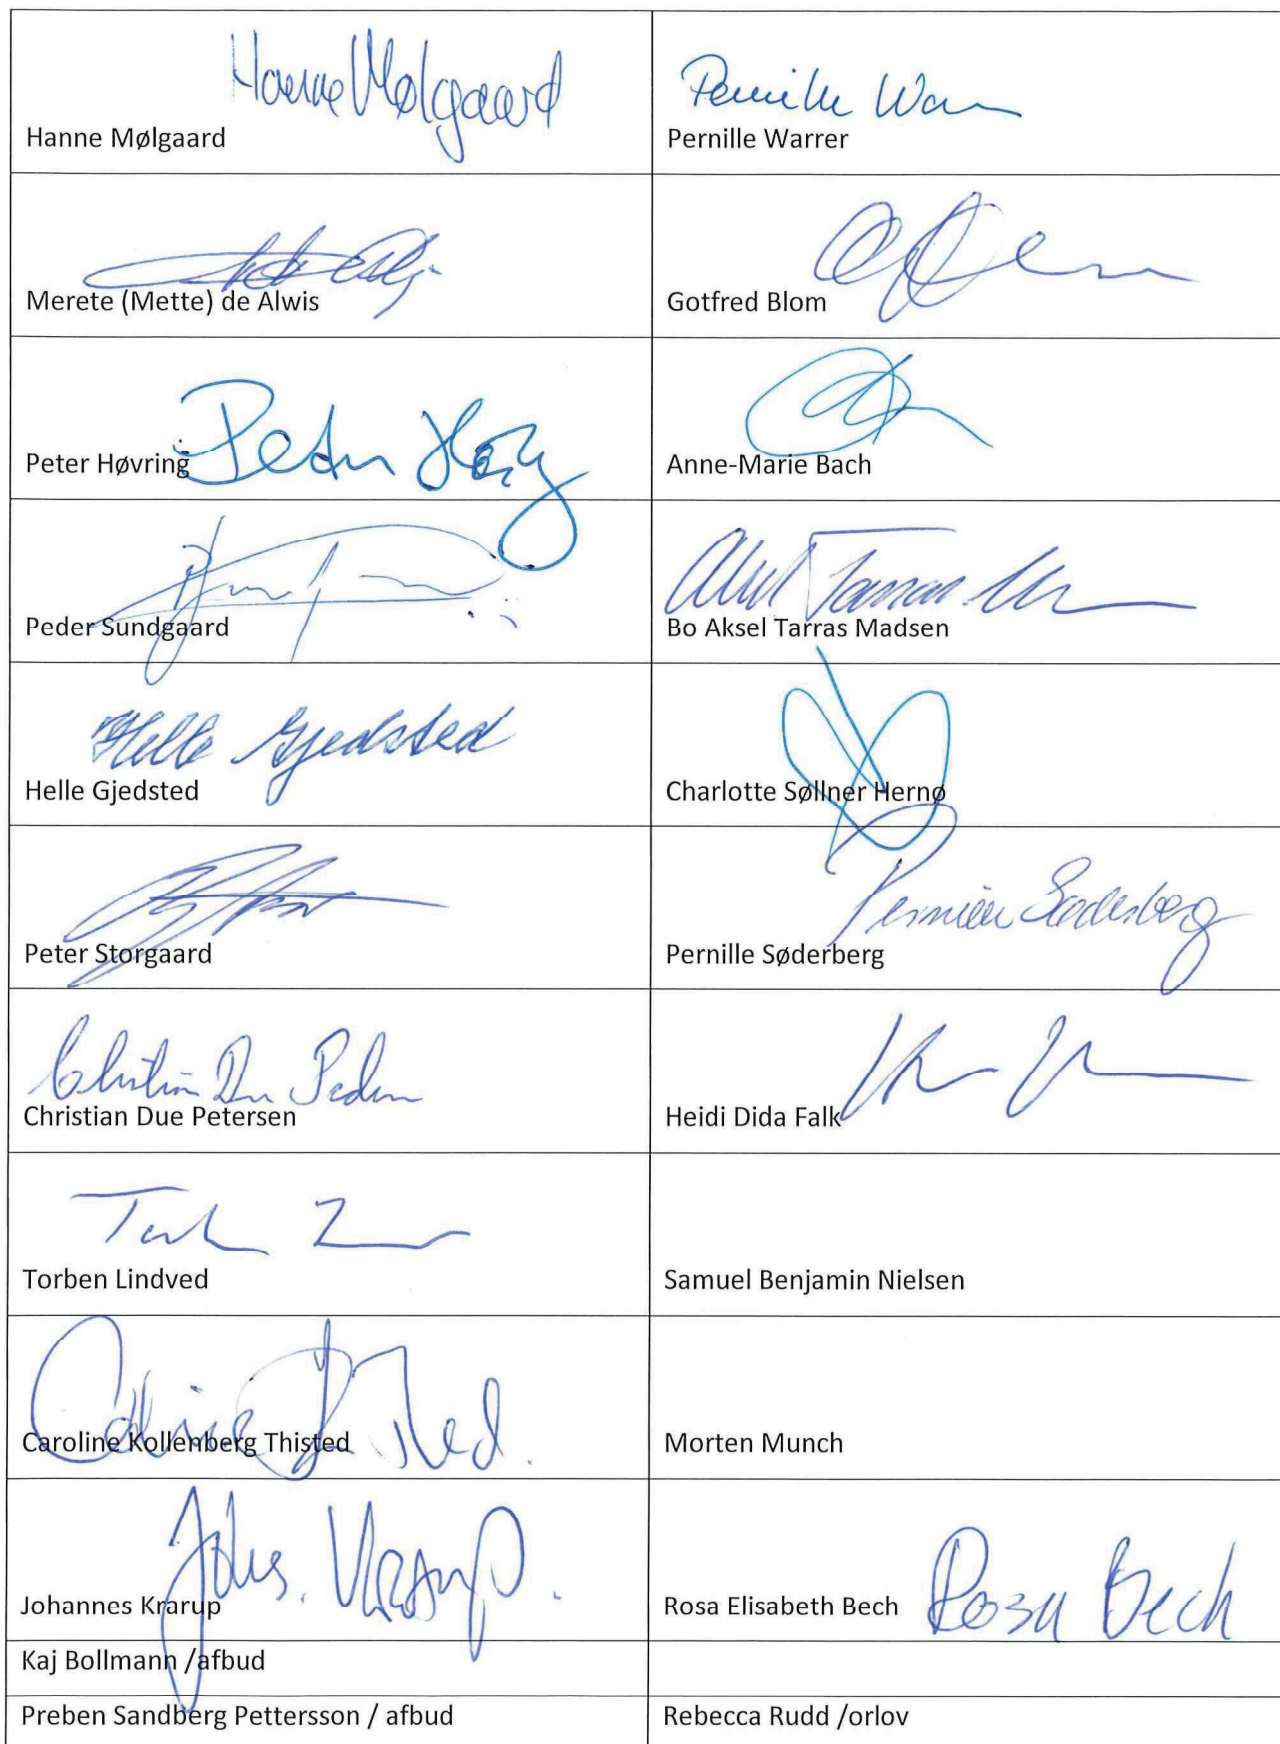 Hanne Mølgaard
Hanne Mølgaard
Pernille War
Pernille Warrer
Merete (Mette) de Alwis
Gotfred Blom
Peter Høvring
Anne-Marie Bach
Peder Sundgaard
Bo Aksel Tarras Madsen
Helle Gjedsted
Helle Gjedsted
Charlotte Søllner Hernø
Peter Storgaard
Pernille Søderberg
Pernille Søderberg
Christian Due Pedersen
Christian Due Petersen
Heidi Dida Falk
Torben Lindved
Samuel Benjamin Nielsen
Caroline Kollenberg Thisted
Morten Munch
Johs. Krarup.
Johannes Krarup
Rosa Bech
Rosa Elisabeth Bech
Kaj Bollmann /afbud
Preben Sandberg Pettersson / afbud
Rebecca Rudd /orlov